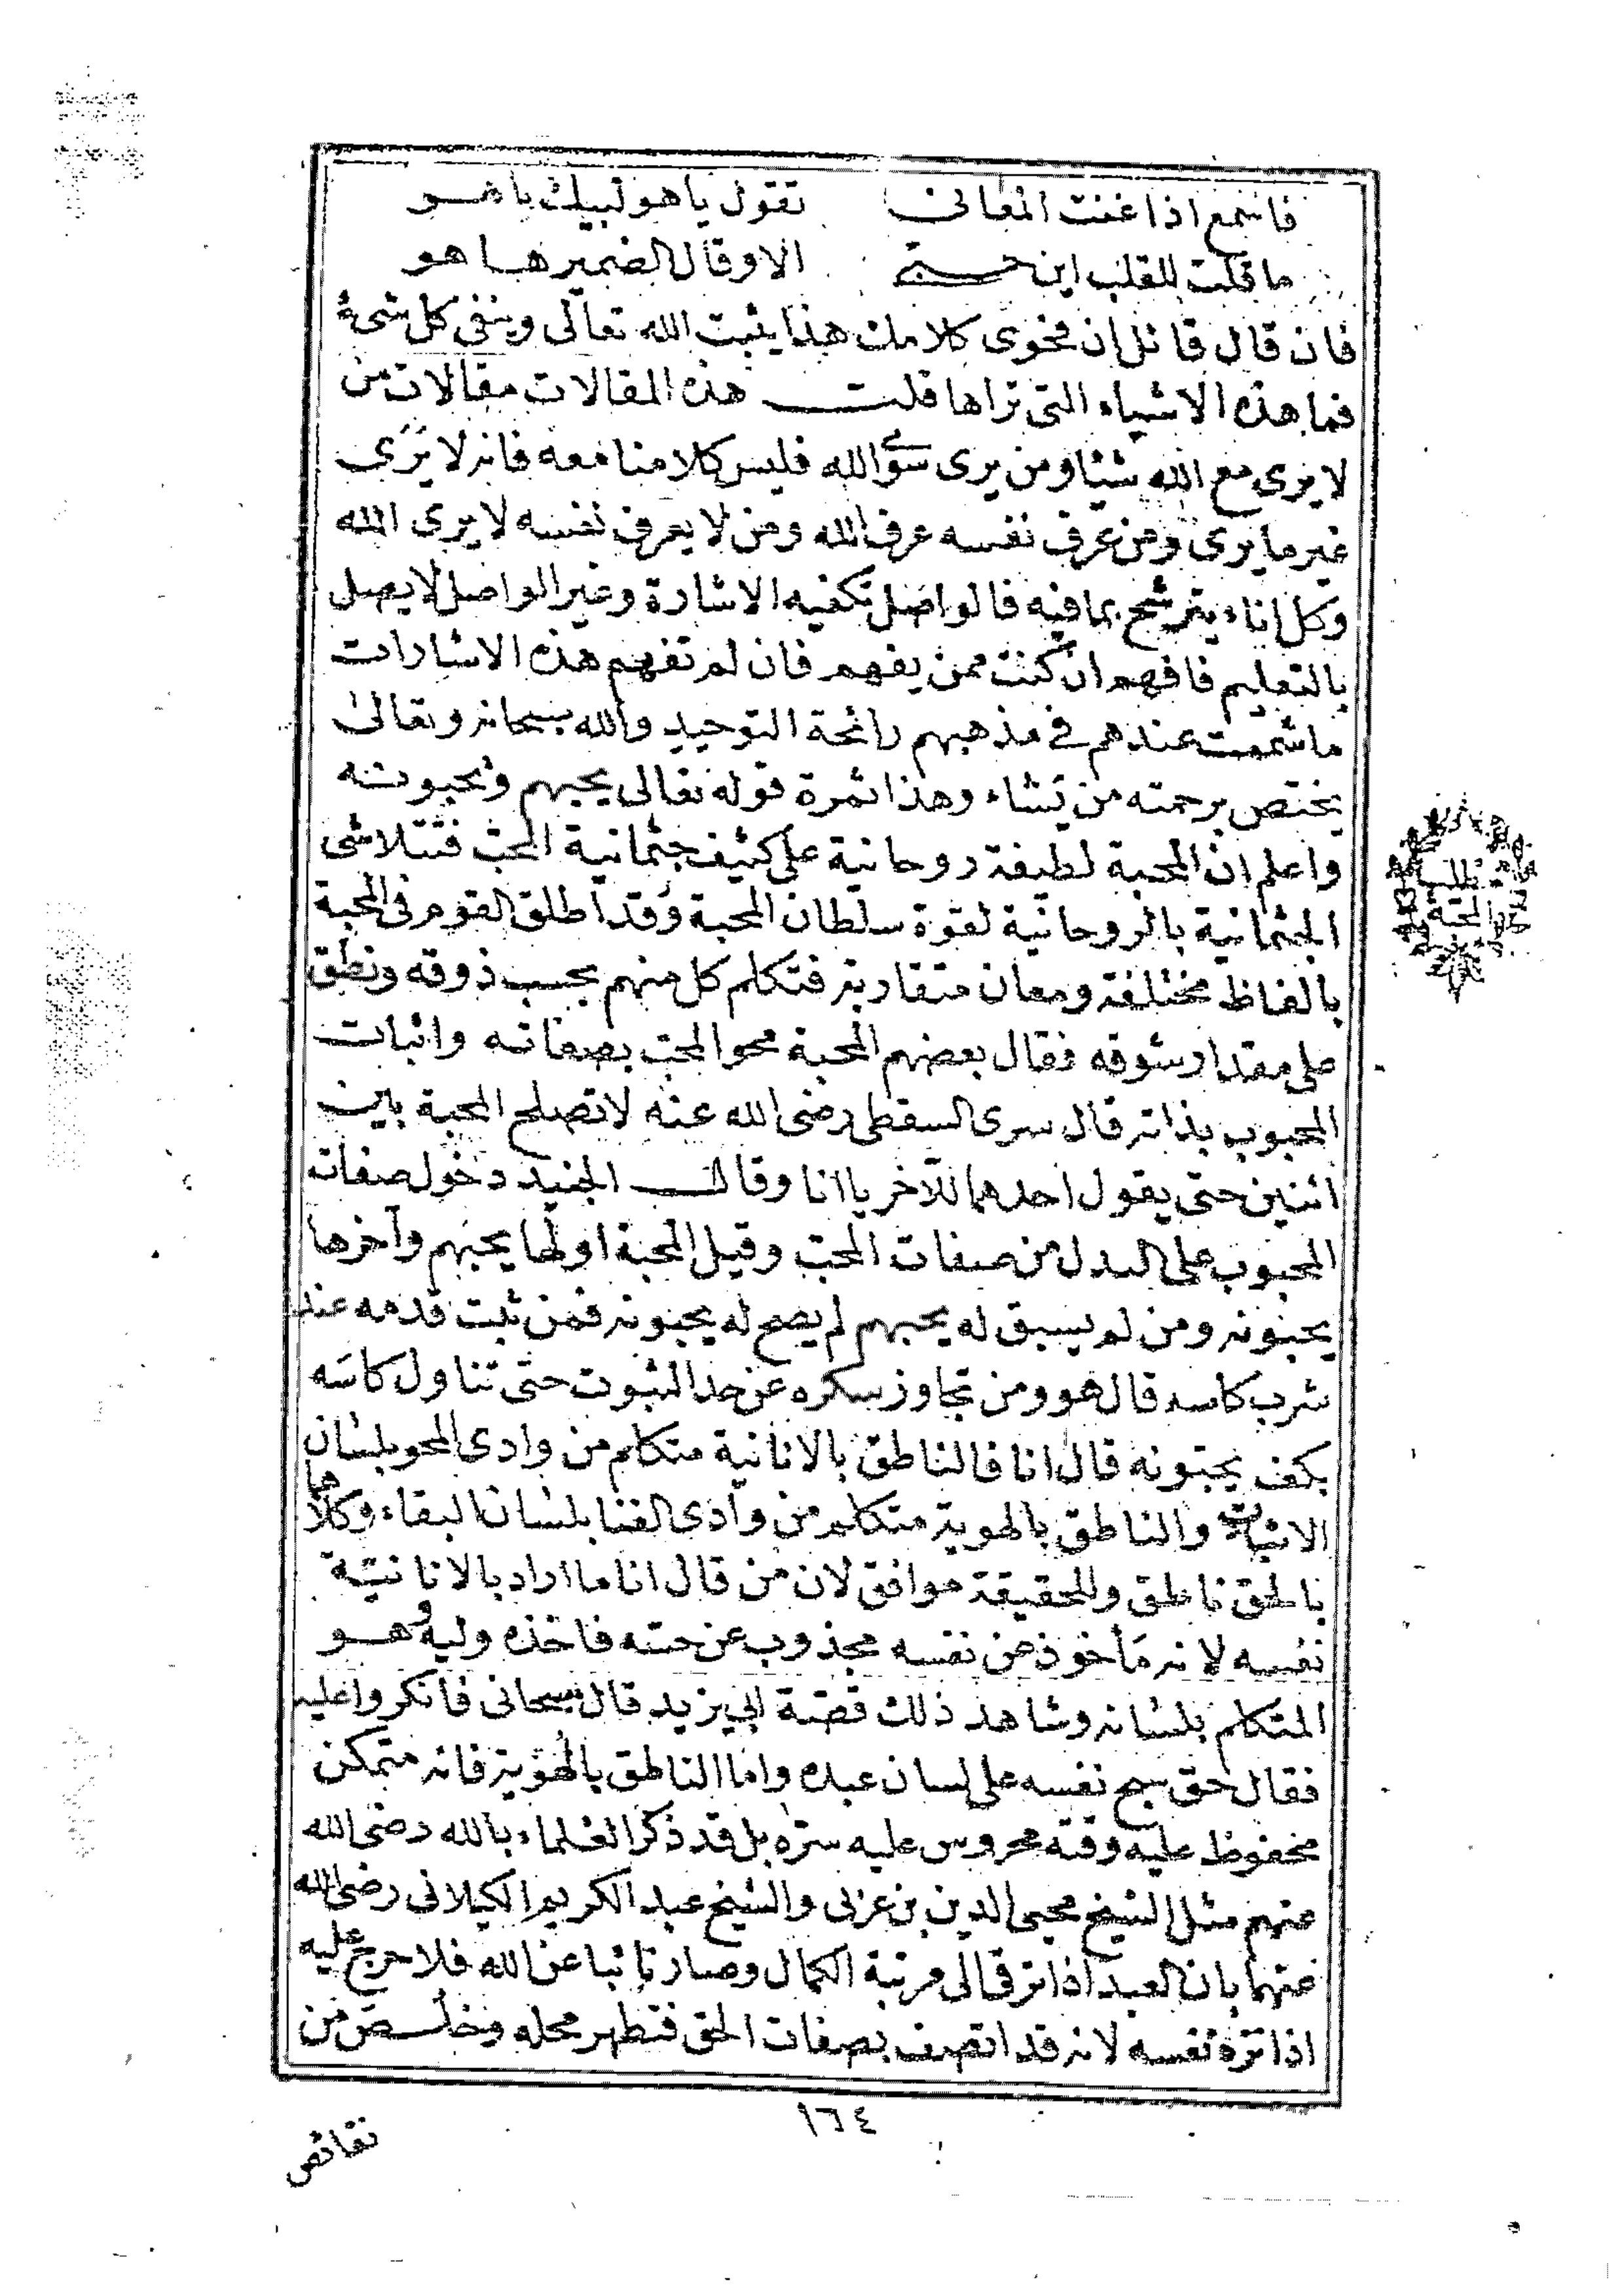 فاسمع اذا غنت المعانى تقول يا هو لبيك يا هو
ما قلت للقلب اين حبى الا وقال الضمير ها هو
فان قال قائل ان فحوى كلامك هذا يثبت الله تعالى وينفى كل شىء
فما هذه الاشياء التى نراها قلت هذه المقالات مقالات من
لا يرى مع الله شيئا ومن يرى سوى الله فليس كلامنا معه فانه لا يرى
غير ما يرى ومن عرف نفسه عرف الله ومن لا يعرف نفسه لا يرى الله
وكل اناء يترشح بما فيه فالواصل تكفيه الاشارة وغير الواصل لا يصل
بالتعليم فافهم ان كنت ممن يفهم فان لم تفهم هذه الاشارات
ما شممت عندهم فى مذهبهم رائحة التوحيد والله سبحانه وتعالى
يختص برحمته من يشاء وهذا ثمرة قوله تعالى يحبهم ويحبونه
واعلم ان المحبة لطيفة روحانية على كثيف جثمانية المحب فتتلاشى
الجثمانية بالروحانية لقوة سلطان المحبة وقد اطلق القوم فى المحبة
بالفاظ مختلفة ومعان متقاربة فتكلم كل منهم بحسب ذوقه ونطق
على مقدار شوقه فقال بعضهم المحبة محو المحب بصفاته واثبات
المحبوب بذاته قال سرى السقطى رضى الله عنه لا تصلح المحبة بين
اثنين حتى يقول احدهما للآخر يا انا وقال الجنيد دخول صفات
المحبوب على البدل من صفات المحب وقيل المحبة اولها يحبهم وآخرها
يحبونه ومن لم يسبق له يحبهم لم يصح له يحبونه فمن ثبت قدمه عند
شرب كاسه قال هو ومن تجاوز سكره عن حد الثبوت حتى تناول كاسه
بكف يحبونه قال انا فالناطق بالانانية متكلم من وادى المحو بلسان
الاثبات والناطق بالهوية متكلم من وادى الفنا بلسان البقاء وكلاهما
بالحق ناطق وللحقيقة موافق لان من قال انا ما اراد بالانانية
نفسه لانه مأخوذ من نفسه مجذوب عن حسه فاخذه وليه وهو
المتكلم بلسانه وشاهد ذلك قصة ابى يزيد قال سبحانى فانكروا عليه
فقال حق سبح نفسه على لسان عبده واما الناطق بالهوية فانه متمكن
محفوظ عليه وقته محروس عليه سره بل قد ذكر العلماء بالله رضى الله
عنهم مثل الشيخ محيى الدين بن عربى والشيخ عبد الكريم الكيلانى رضى الله
عنهما بان العبد اذا ترقى الى مرتبة الكمال وصار نائبا عن الله فلا حرج عليه
اذا نزه نفسه لانه قد اتصف بصفات الحق فتطهر محله وخلص من
مطلب
المحبة
١٦٤
نقائص